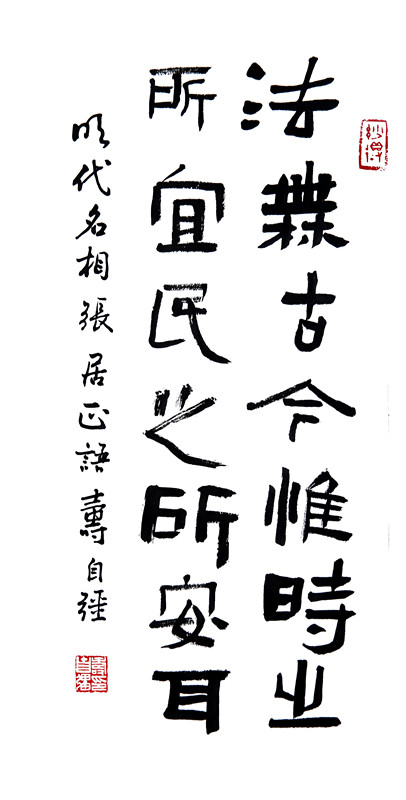 法無古今惟時之
所宜民之所安耳
明代名相張居正語壽自强